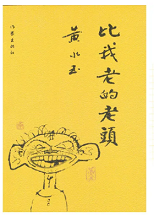 比我老的老頭
黃永玉
作家出版社